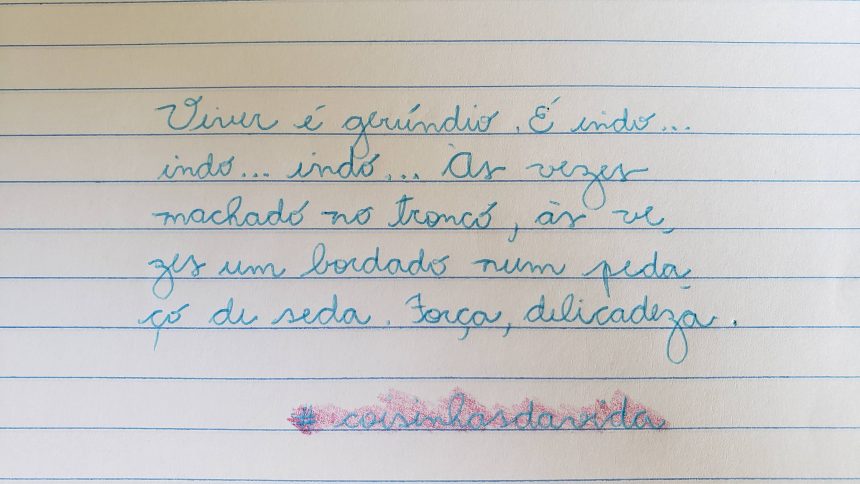 Viver é gerúndio. É indo...
indo... indo... Às vezes
machado no tronco, às ve-
zes um bordado num peda-
ço de seda. Força, delicadeza.
# coisinhasdavida